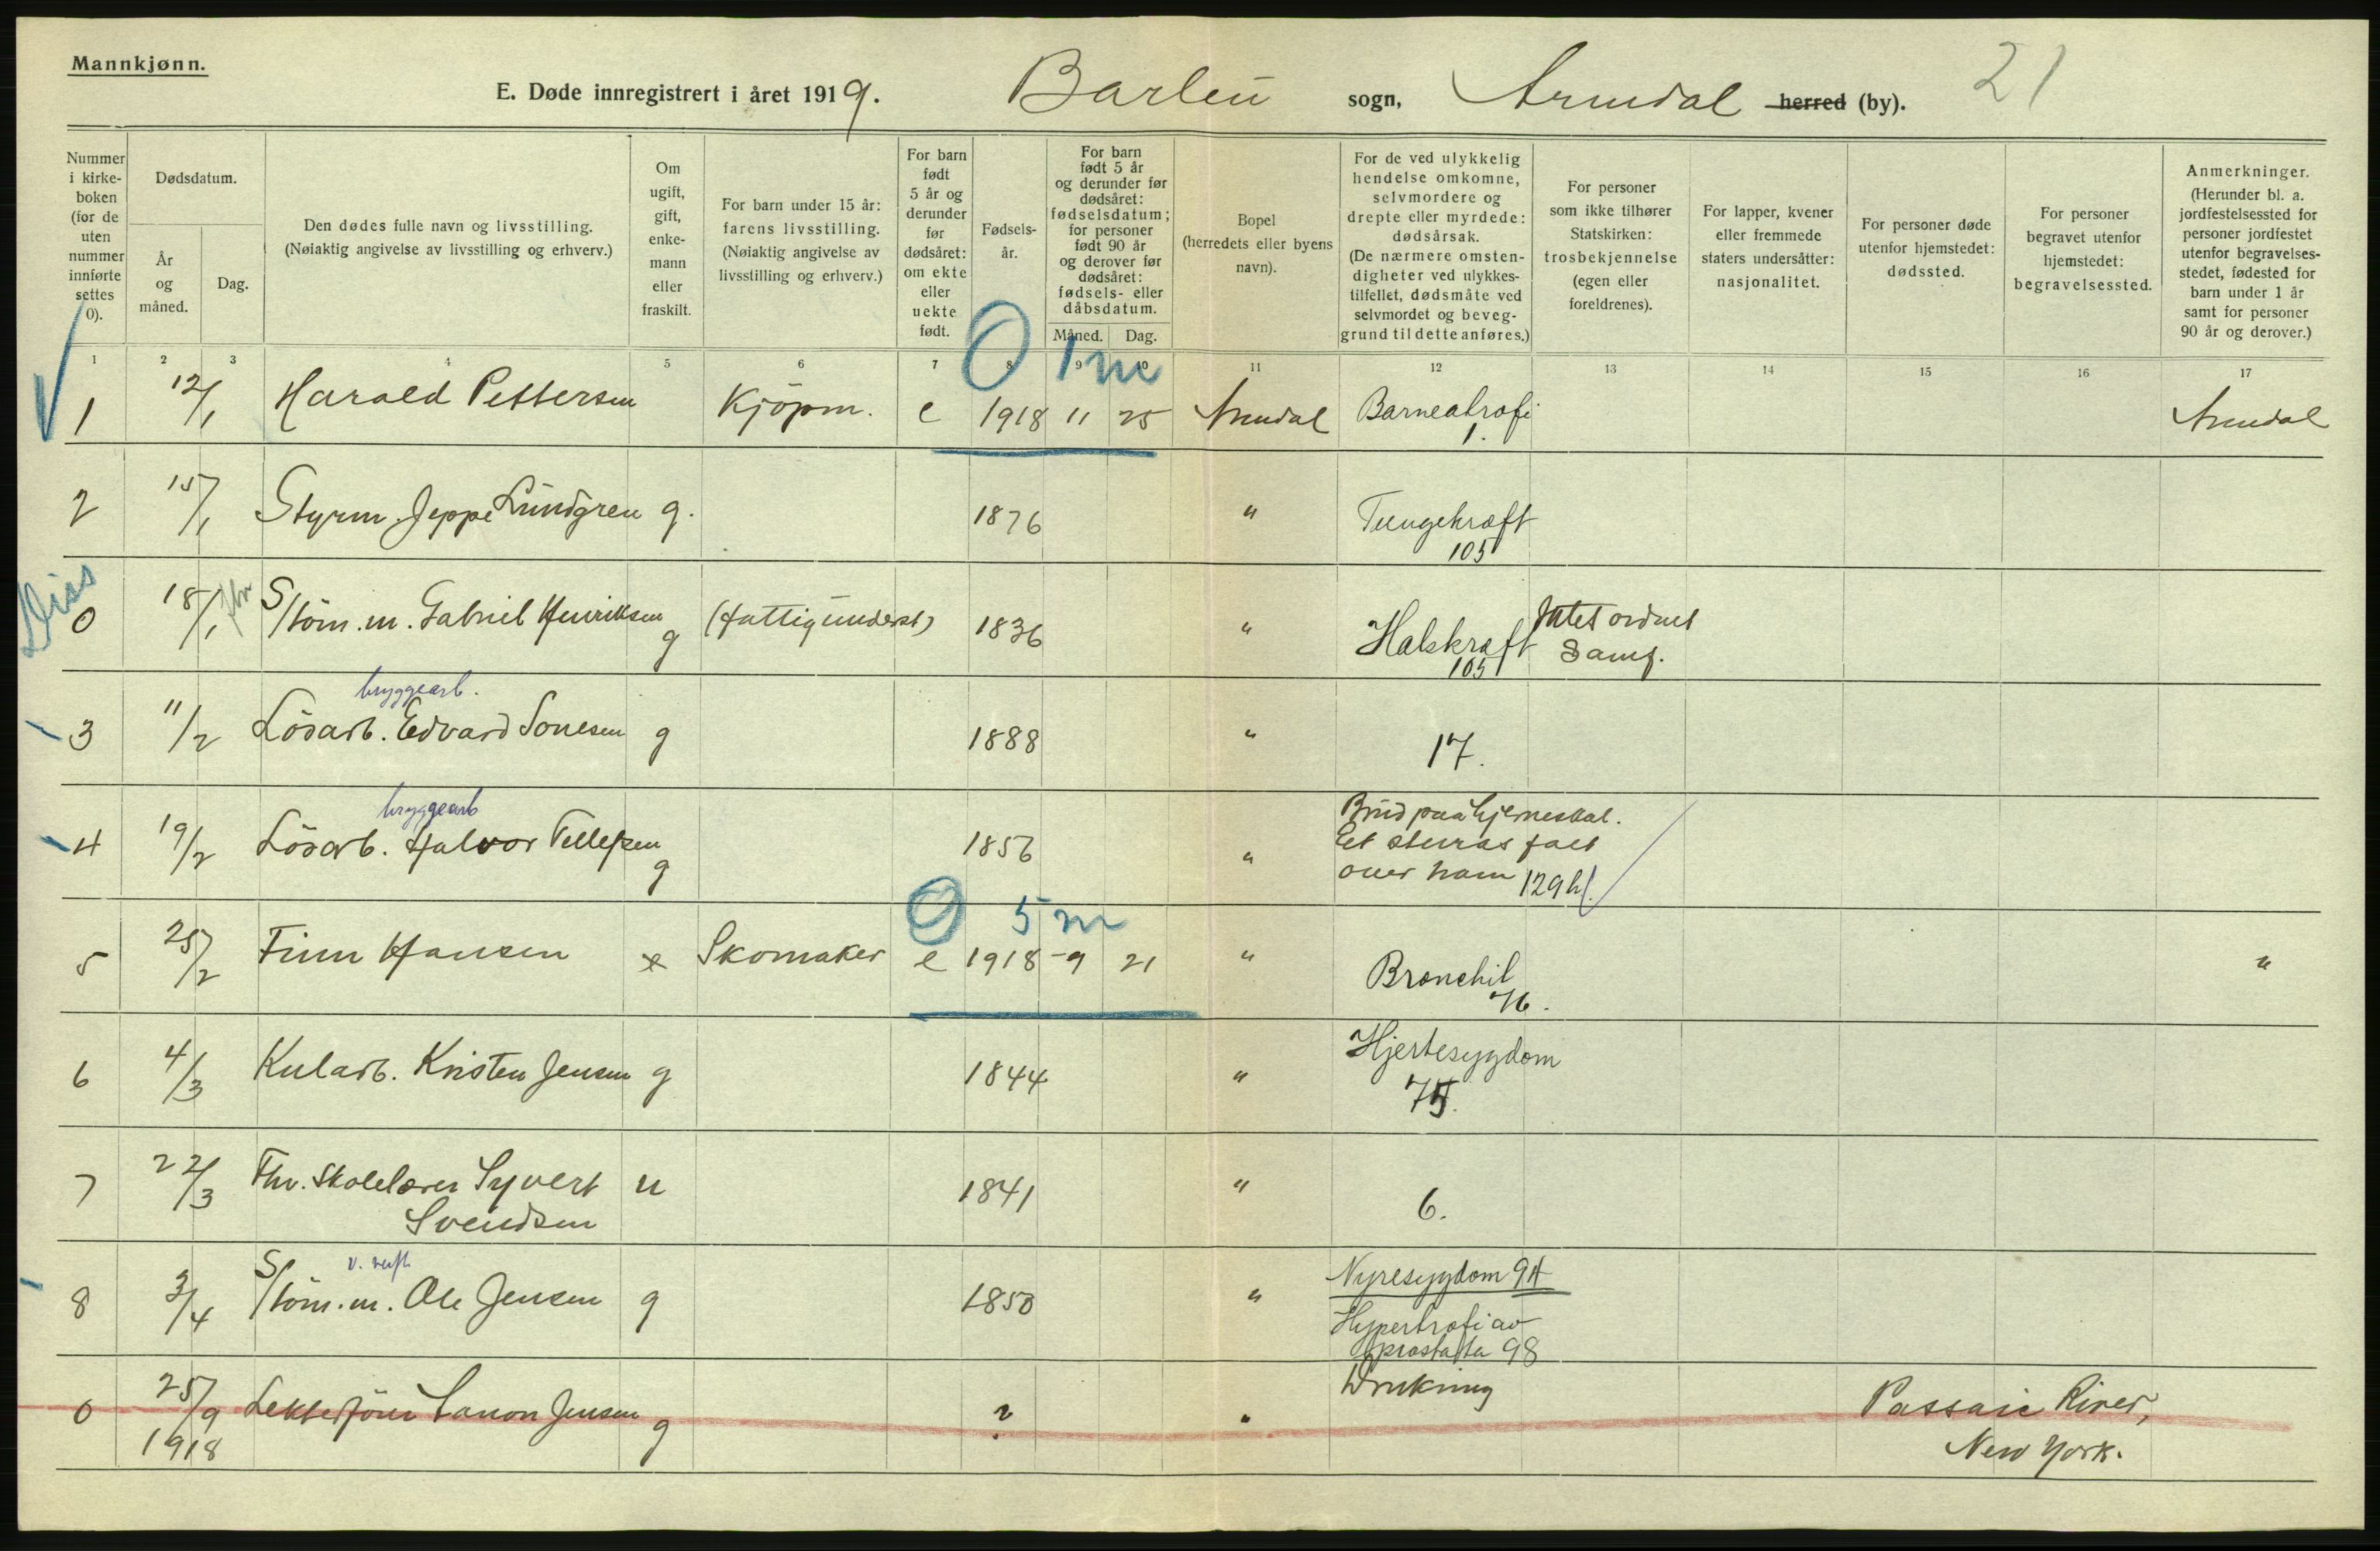 Mannkjønn.
E. Døde innregistrert i året 1919. Barbu sogn, Arendal herred (by). 21
Nummer i kirke-boken (for de uten nummer innførte settes 0).
Dødsdatum.
År og måned.
Dag.
Den dødes fulle navn og livsstilling. (Nøiaktig angivelse av livsstilling og erhverv.)
Om ugift, gift, enke-mann eller fraskilt.
For barn under 15 år: farens livsstilling. (Nøiaktig angivelse av livsstilling og erhverv.)
For barn født 5 år og derunder før dødsåret: om ekte eller uekte født.
Fødsels-år.
For barn født 5 år og derunder før dødsåret: fødselsdatum; for personer født 90 år og derover før dødsåret: fødsels- eller dåbsdatum.
Måned. Dag.
Bopel (herredets eller byens navn).
For de ved ulykkelig hendelse omkomne, selvmordere og drepte eller myrdede: dødsårsak. (De nærmere omsten-digheter ved ulykkes-tilfellet, dødsmåte ved selvmordet og beveg-grund til dette anføres.)
For personer som ikke tilhører Statskirken: trosbekjennelse (egen eller foreldrenes).
For lapper, kvener eller fremmede staters undersåtter: nasjonalitet.
For personer døde utenfor hjemstedet: dødssted.
For personer begravet utenfor hjemstedet: begravelsessted.
Anmerkninger. (Herunder bl. a. jordfestelsessted for personer jordfestet utenfor begravelses-stedet, fødested for barn under 1 år samt for personer 90 år og derover.)
1 2 3 4 5 6 7 8 9 10 11 12 13 14 15 16 17
0 1 m
1 12/1 Harald Pettersen Kjöpm. e 1918 11 25 Arendal Barneatrofi Arendal
1.
2 15/1 Styrm. Jeppe Lundgren g. 1876 " Tungekræft
105
Diss
0 18/1 Stöm.m. Gabriel Henriksen g (Fattigunderst) 1836 " Halskræft Intet ordnet
105 Samf.
bryggearb.
3 11/2 Lösarb. Edvard Tonesen g 1888 " 17.
bryggearb
4 19/2 Lösarb. Halvor Tellefsen g 1856 " Brud paa hjerneskal.
Et sturas falt
over ham 129 h/.
0 5 m
5 25/2 Finn Hansen Skomaker e 1918 -9 21 " Bronchit "
76.
6 4/3 Kularb. Kristen Jensen g 1844 " Hjertesygdom
75.
7 22/3 Fhv. Skolelærer Syvert u 1841 " 6.
Svendsen
v. verft.
8 3/4 Stöm.m. Ole Jensen g 1850 " Nyresygdom 94
Hypertrofi av
prostatta 98
0 25/9 Lekterförer Sanon Jensen g ? " Drukning Passaic River,
1918 New York.